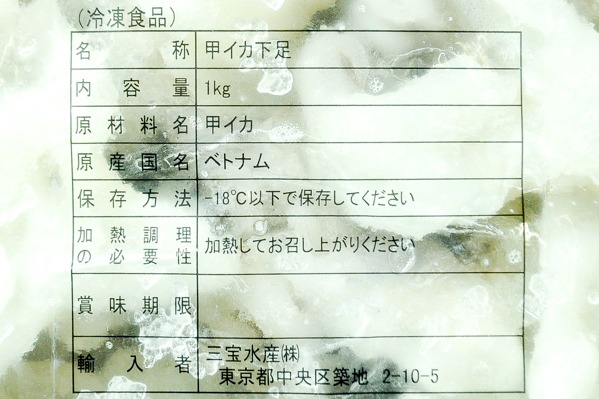 (冷凍食品)
名称 甲イカ下足
内容量 1kg
原材料名 甲イカ
原産国名 ベトナム
保存方法 -18℃以下で保存してください
加熱調理の必要性 加熱してお召し上がりください
賞味期限
輸入者 三宝水産㈱
東京都中央区築地 2-10-5